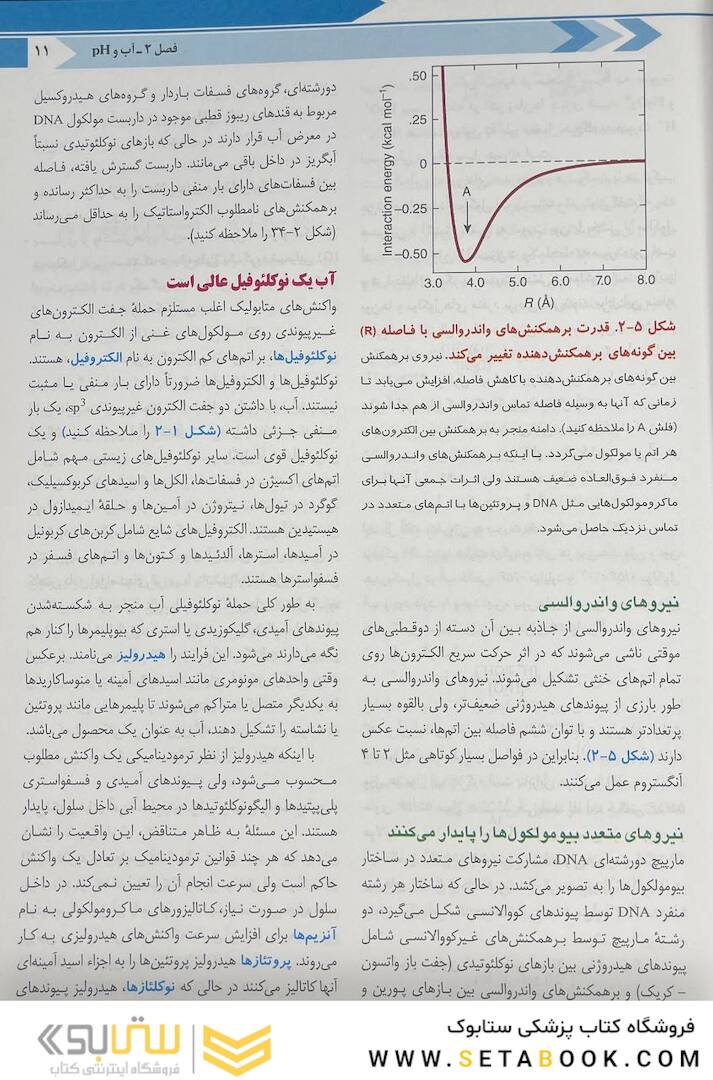 فصل ۲ ـ آب و pH
۱۱
.50
.25
0
−0.25
−0.50
3.0 4.0 5.0 6.0 7.0 8.0
A
Interaction energy (kcal mol⁻¹)
R (Å)
شکل ۵-۲. قدرت برهمکنش‌های واندروالسی با فاصله (R)
بین گونه‌های برهمکنش‌دهنده تغییر می‌کند. نیروی برهمکنش
بین گونه‌های برهمکنش‌دهنده با کاهش فاصله، افزایش می‌یابد تا
زمانی که آنها به وسیله فاصله تماس واندروالسی از هم جدا شوند
(فلش A را ملاحظه کنید). دامنه منجر به برهمکنش بین الکترون‌های
هر اتم یا مولکول می‌گردد. با اینکه برهمکنش‌های واندروالسی
منفرد فوق‌العاده ضعیف هستند ولی اثرات جمعی آنها برای
ماکرومولکول‌هایی مثل DNA و پروتئین‌ها با اتم‌های متعدد در
تماس نزدیک حاصل می‌شود.
نیروهای واندروالسی
نیروهای واندروالسی از جاذبه بین آن دسته از دوقطبی‌های
موقتی ناشی می‌شوند که در اثر حرکت سریع الکترون‌ها روی
تمام اتم‌های خنثی تشکیل می‌شوند. نیروهای واندروالسی به
طور بارزی از پیوندهای هیدروژنی ضعیف‌تر، ولی بالقوه بسیار
پرتعدادتر هستند و با توان ششم فاصله بین اتم‌ها، نسبت عکس
دارند (شکل ۵-۲). بنابراین در فواصل بسیار کوتاهی مثل ۲ تا ۴
آنگستروم عمل می‌کنند.
نیروهای متعدد بیومولکول‌ها را پایدار می‌کنند
مارپیچ دورشته‌ای DNA، مشارکت نیروهای متعدد در ساختار
بیومولکول‌ها را به تصویر می‌کشد. در حالی که ساختار هر رشته
منفرد DNA توسط پیوندهای کووالانسی شکل می‌گیرد، دو
رشتهٔ مارپیچ توسط برهمکنش‌های غیرکووالانسی شامل
پیوندهای هیدروژنی بین بازهای نوکلئوتیدی (جفت باز واتسون
- کریک) و برهمکنش‌های واندروالسی بین بازهای پورین و
دورشته‌ای، گروه‌های فسفات باردار و گروه‌های هیدروکسیل
مربوط به قندهای ریبوز قطبی موجود در داربست مولکول DNA
در معرض آب قرار دارند در حالی که بازهای نوکلئوتیدی نسبتاً
آبگریز در داخل باقی می‌مانند. داربست گسترش یافته، فاصله
بین فسفات‌های دارای بار منفی داربست را به حداکثر رسانده و
برهمکنش‌های نامطلوب الکترواستاتیک را به حداقل می‌رساند
(شکل ۲-۳۴ را ملاحظه کنید).
آب یک نوکلئوفیل عالی است
واکنش‌های متابولیک اغلب مستلزم حملهٔ جفت الکترون‌های
غیرپیوندی روی مولکول‌های غنی از الکترون به نام
نوکلئوفیل‌ها، بر اتم‌های کم الکترون به نام الکتروفیل، هستند.
نوکلئوفیل‌ها و الکتروفیل‌ها ضرورتاً دارای بار منفی یا مثبت
نیستند. آب، با داشتن دو جفت الکترون غیرپیوندی sp³، یک بار
منفی جزئی داشته (شکل ۱-۲ را ملاحظه کنید) و یک
نوکلئوفیل قوی است. سایر نوکلئوفیل‌های زیستی مهم شامل
اتم‌های اکسیژن در فسفات‌ها، الکل‌ها و اسیدهای کربوکسیلیک،
گوگرد در تیول‌ها، نیتروژن در آمین‌ها و حلقهٔ ایمیدازول در
هیستیدین هستند. الکتروفیل‌های شایع شامل کربن‌های کربونیل
در آمیدها، استرها، آلدئیدها و کتون‌ها و اتم‌های فسفر در
فسفواسترها هستند.
به طور کلی حملهٔ نوکلئوفیلی آب منجر به شکسته‌شدن
پیوندهای آمیدی، گلیکوزیدی یا استری که بیوپلیمرها را کنار هم
نگه می‌دارند می‌شود. این فرایند را هیدرولیز می‌نامند. برعکس
وقتی واحدهای مونومری مانند اسیدهای آمینه یا منوساکاریدها
به یکدیگر متصل یا متراکم می‌شوند تا پلیمرهایی مانند پروتئین
یا نشاسته را تشکیل دهند، آب به عنوان یک محصول می‌باشد.
با اینکه هیدرولیز از نظر ترمودینامیکی یک واکنش مطلوب
محسوب می‌شود، ولی پیوندهای آمیدی و فسفواستری
پلی‌پپتیدها و الیگونوکلئوتیدها در محیط آبی داخل سلول، پایدار
هستند. این مسئلهٔ به ظاهر متناقض، این واقعیت را نشان
می‌دهد که هر چند قوانین ترمودینامیک بر تعادل یک واکنش
حاکم است ولی سرعت انجام آن را تعیین نمی‌کند. در داخل
سلول در صورت نیاز، کاتالیزورهای ماکرومولکولی به نام
آنزیم‌ها برای افزایش سرعت واکنش‌های هیدرولیزی به کار
می‌روند. پروتئازها هیدرولیز پروتئین‌ها را به اجزاء اسید آمینه‌ای
آنها کاتالیز می‌کنند در حالی که نوکلئازها، هیدرولیز پیوندهای
فروشگاه کتاب پزشکی ستابوک
WWW.SETABOOK.COM
ستابوک
فروشگاه اینترنتی کتاب